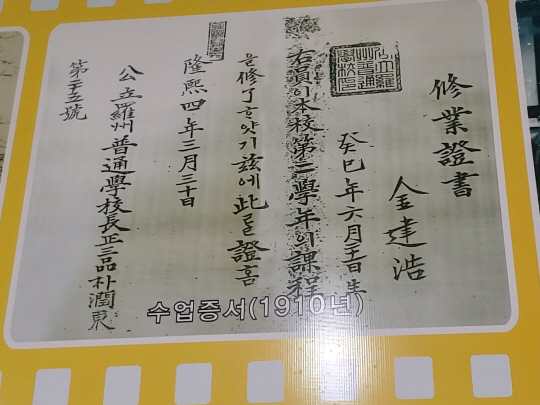 修業證書
金建浩
癸巳年六月 日生
右員이本校第 學年의課程
을修了ᄒᆞ얏기玆에此ᄅᆞᆯ證홈
隆熙四年三月三十日
公立羅州普通學校長正三品朴潤東
第二十五號
수업증서(1910년)